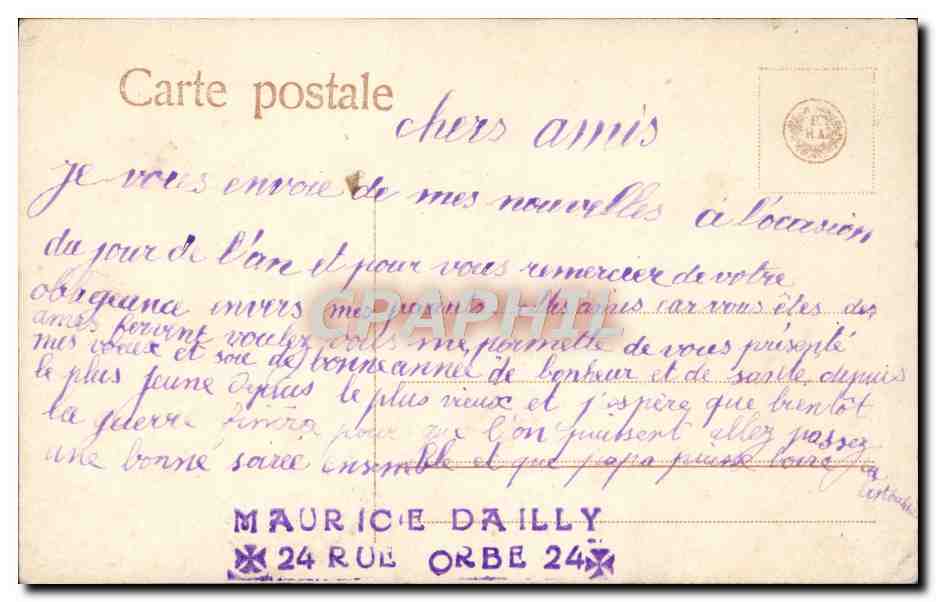 Carte postale
chers amis
Je vous envoie de mes nouvelles à l'ocasion
du jour de l'an et pour vous remercier de votre
obligeance envers mes parents amis car vous êtes des
amis fervent voulez vous me permette de vous présenté
mes voeux et soie de bonne année de bonheur et de santé depuis
le plus jeune depuis le plus vieux et j'espère que bientôt
la guerre finira pour que l'on puissent allez passez
une bonné soirée ensemble et que papa puisse boire
MAURICE DAILLY
24 RUE ORBE 24
CPAPHIL